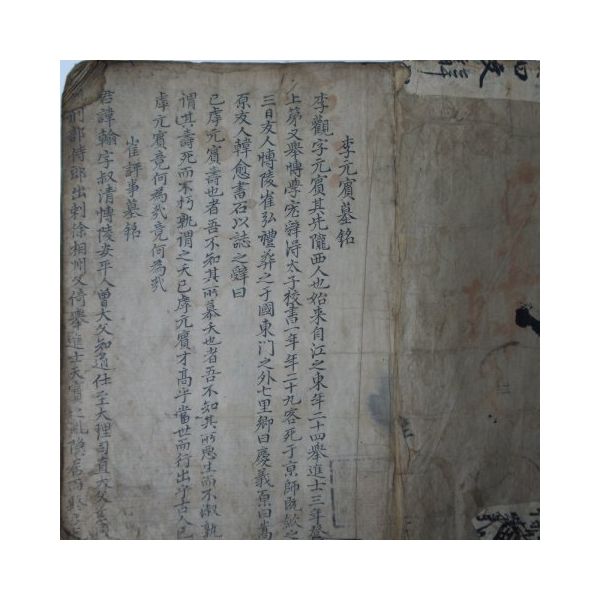 李元賓墓銘
李觀字元賓其先隴西人也始來自江之東年二十四舉進士三年登
上第又舉博學宏辭得太子校書一年年二十九客死于京師旣斂之
三日友人博陵崔弘禮葬之于國東門之外七里鄉曰慶義原曰嵩
原友人韓愈書石以誌之辭曰
已虖元賓壽也者吾不知其所慕夭也者吾不知其所惡生而不淑孰
謂其壽死而不朽孰謂之夭已虖元賓才高乎當世而行出乎古人已
虖元賓竟何爲哉竟何爲哉
崔評事墓銘
君諱翰字叔清博陵安平人曾大父知道仕至大理司直大父
刑部侍郎出刺徐相州父倚舉進士天寶之亂隱居